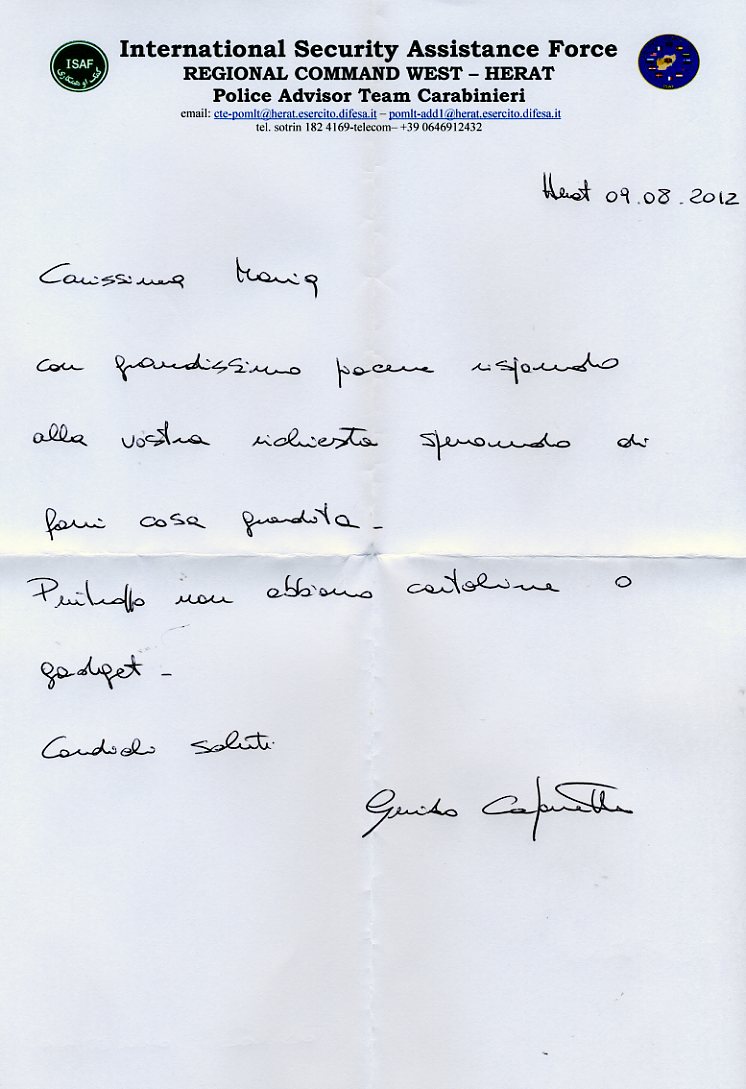 ISAF
کمک او همکاری
International Security Assistance Force
REGIONAL COMMAND WEST – HERAT
Police Advisor Team Carabinieri
email: cte-pomlt@herat.esercito.difesa.it – pomlt-add1@herat.esercito.difesa.it
tel. sotrin 182 4169-telecom– +39 0646912432
Herat 09.08.2012
Carissima Maria
con grandissimo piacere rispondo
alla vostra richiesta sperando di
farvi cosa gradita -
Purtroppo non abbiamo cartoline o
gadget -
Cordiali saluti
Guido